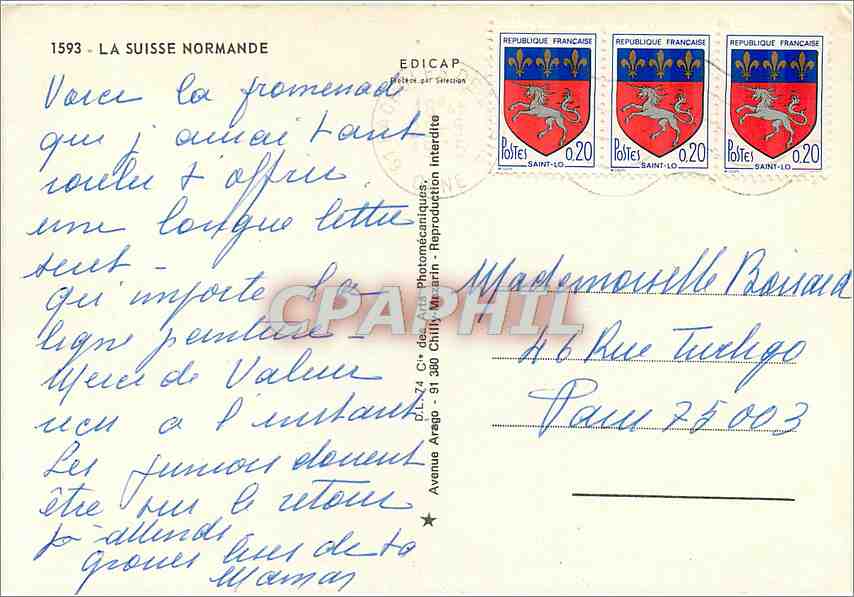 1593 - LA SUISSE NORMANDE
EDICAP
Procédé par Sélection
Voici la promenade
que j'aurai tant
voulu t'offrir
une longue lettre
suit -
qu'importe la
ligne
Merci de Valeur
reçu à l'instant
Les juniors doivent
être sur le retour
j'attends
grosses bises de ta
Maman
D.L. 74 Cie des Arts Photomécaniques,
Avenue Arago - 91 380 Chilly-Mazarin - Reproduction interdite
REPUBLIQUE FRANÇAISE
POSTES 0,20
SAINT-LO
REPUBLIQUE FRANÇAISE
POSTES 0,20
SAINT-LO
REPUBLIQUE FRANÇAISE
POSTES 0,20
SAINT-LO
Mademoiselle
46 Rue Turbigo
Paris 75003
CPAPHIL